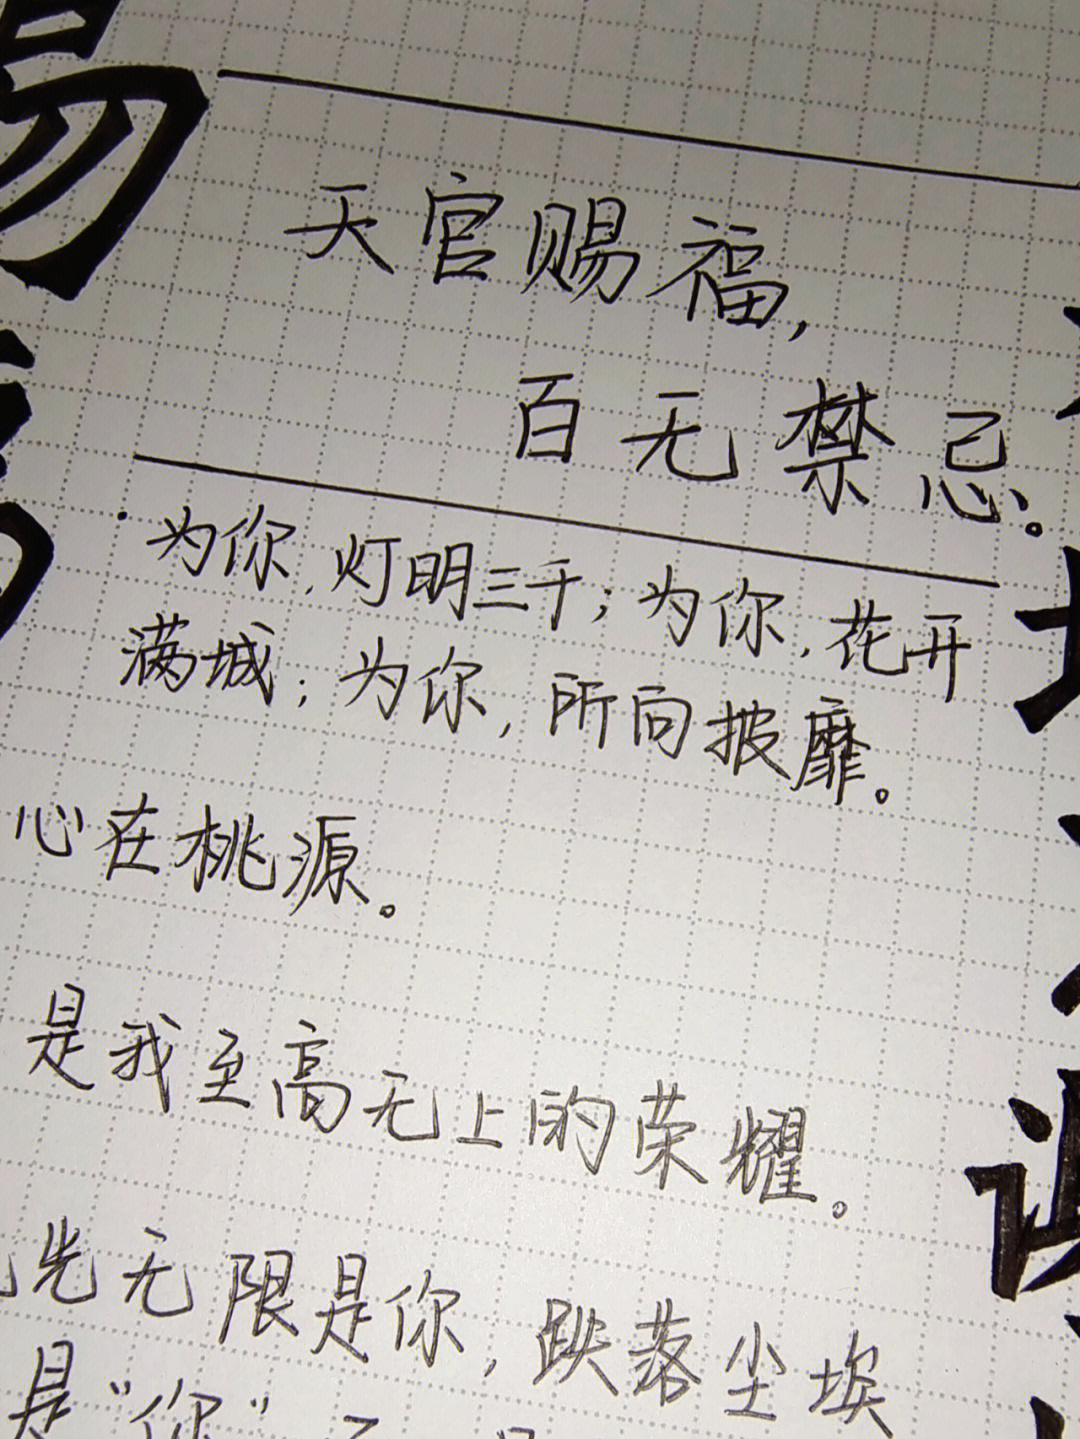 赐
天官赐福,
百无禁忌。
·为你,灯明三千;为你,花开
满城;为你,所向披靡。
心在桃源。
是我至高无上的荣耀。
光无限是你,跌落尘埃
是“你”